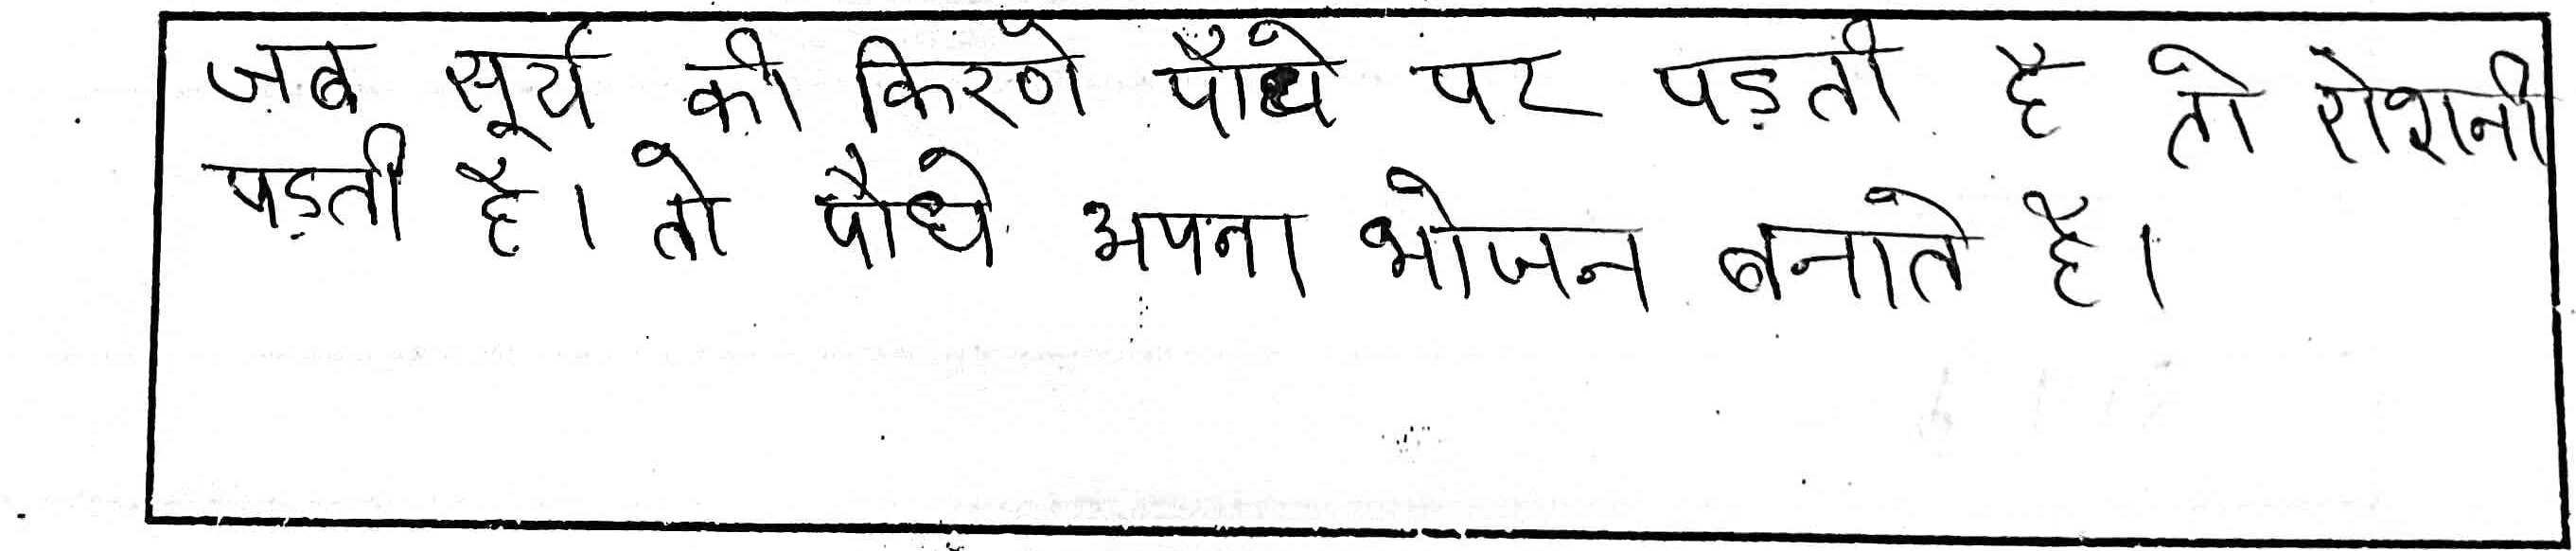 जब सूर्य की किरणे पौधे पर पड़ती है तो रोशनी
पड़ती है। तो पौधे अपना भोजन बनाते है।